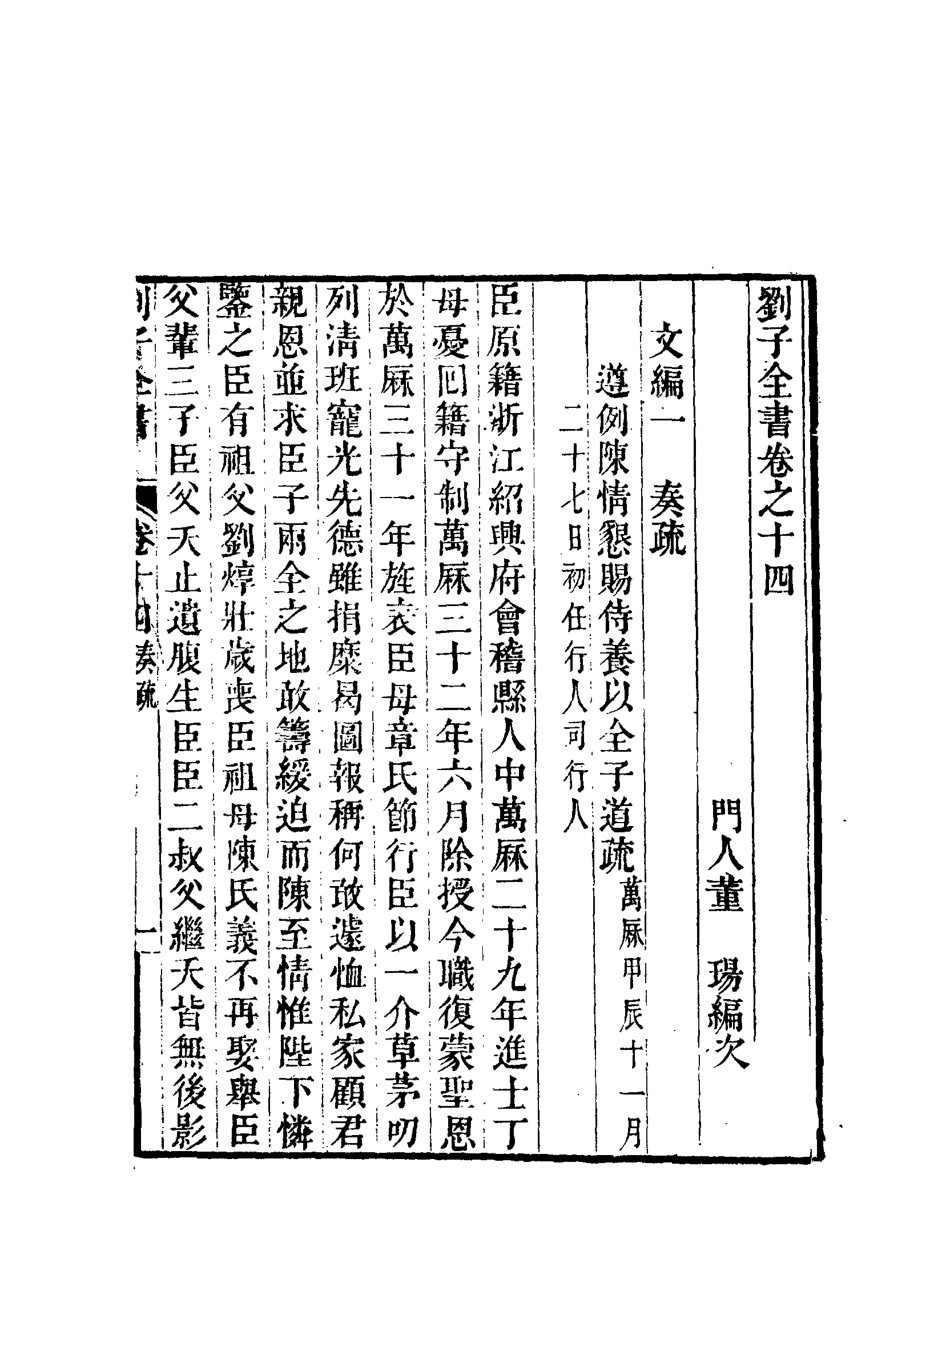 劉子全書卷之十四
門人董　瑒編次
文編一　奏疏
遵例陳情懇賜侍養以全子道疏萬厤甲辰十一月
二十七日初任行人司行人
臣原籍浙江紹興府會稽縣人中萬厤二十九年進士丁
母憂回籍守制萬厤三十二年六月除授今職復蒙聖恩
於萬厤三十一年旌表臣母章氏節行臣以一介草茅叨
列清班寵光先德雖捐糜曷圖報稱何敢遽恤私家顧君
親恩並求臣子兩全之地敢籌緩迫而陳至情惟陛下憐
鑒之臣有祖父劉焞壯歲喪臣祖母陳氏義不再娶舉臣
父輩三子臣父夭止遺腹生臣臣二叔父繼夭皆無後影
劉子全書　卷十四奏疏　一